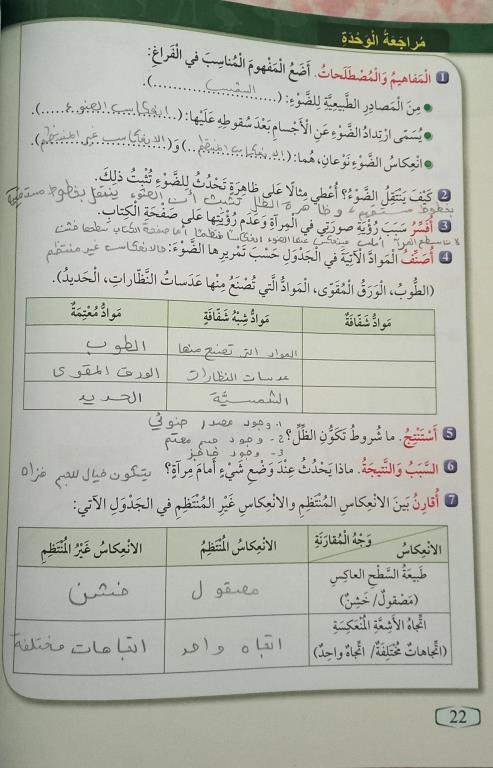 مُراجَعَةُ الْوَحْدَةِ
1 الْمَفاهيمُ وَالْمُصْطَلَحاتُ. أَضَعُ الْمَفْهومَ الْمُناسِبَ في الْفَراغِ:
مِنَ الْمَصادِرِ الطَّبيعِيَّةِ لِلضَّوْءِ: (الشمس).
يُسَمّى ارْتِدادُ الضَّوْءِ عَنِ الْأَجْسامِ بَعْدَ سُقوطِهِ عَلَيْها: (انعكاس الضوء).
انْعِكاسُ الضَّوْءِ نَوْعانِ، هُما: (الانعكاس المنتظم) وَ(الانعكاس غير المنتظم).
2 كَيْفَ يَنْتَقِلُ الضَّوْءُ؟ أُعْطي مِثالًا عَلى ظاهِرَةٍ تَحْدُثُ لِلضَّوْءِ تُثْبِتُ ذلِكَ.
بخطوط مستقيمة وظاهرة الظلال تثبت أن الضوء ينتقل بخطوط مستقيمة
3 أُفَسِّرُ سَبَبَ رُؤْيَةِ صورَتي في الْمِرْآةِ وَعَدَمِ رُؤْيَتِها عَلى صَفْحَةِ الْكِتابِ.
لأن سطح المرآة أملس فينعكس عنها الضوء انعكاسًا منتظمًا أما صفحة الكتاب سطحها خشن
فالانعكاس غير منتظم
4 أُصَنِّفُ الْمَوادَّ الْآتِيَةَ في الْجَدْوَلِ حَسَبَ تَمْريرِها الضَّوْءَ:
(الطّوبُ، الْوَرَقُ الْمُقَوّى، الْمَوادُّ الَّتي تُصْنَعُ مِنْها عَدَساتُ النَّظّاراتِ، الْحَديدُ).
مَوادُّ شَفّافَةٌ مَوادُّ شِبْهُ شَفّافَةٍ مَوادُّ مُعْتِمَةٌ
المواد التي تصنع منها الطوب
عدسات النظارات الورق المقوى
الشمسية الحديد
5 أَسْتَنْتِجُ. ما شُروطُ تَكَوُّنِ الظِّلِّ؟ 1- وجود مصدر ضوئي
2- وجود جسم معتم
3- وجود حاجز
6 السَّبَبُ وَالنَّتيجَةُ. ماذا يَحْدُثُ عِنْدَ وَضْعِ شَيْءٍ أَمامَ مِرْآةٍ؟ يتكون خيال للجسم فنراه
7 أُقارِنُ بَيْنَ الِانْعِكاسِ الْمُنْتَظِمِ وَالِانْعِكاسِ غَيْرِ الْمُنْتَظِمِ في الْجَدْوَلِ الْآتي:
الِانْعِكاسُ وَجْهُ الْمُقارَنَةِ الِانْعِكاسُ الْمُنْتَظِمُ الِانْعِكاسُ غَيْرُ الْمُنْتَظِمِ
طَبيعَةُ السَّطْحِ الْعاكِسِ
(مَصْقولٌ/ خَشِنٌ) مصقول خشن
اتِّجاهُ الْأَشِعَّةِ الْمُنْعَكِسَةِ
(اتِّجاهاتٌ مُخْتَلِفَةٌ/ اتِّجاهٌ واحِدٌ) اتجاه واحد اتجاهات مختلفة
22